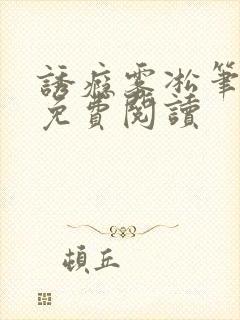 誘癮霧凇筆
免費閱讀
頓丘